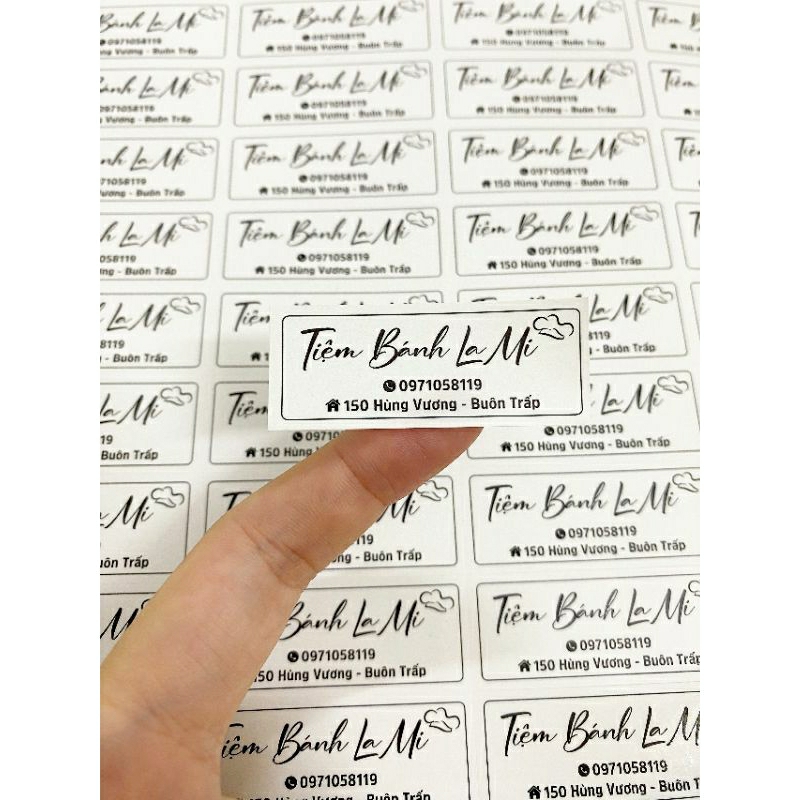 Tiệm Bánh La Mi
0971058119
150 Hùng Vương - Buôn Trấp